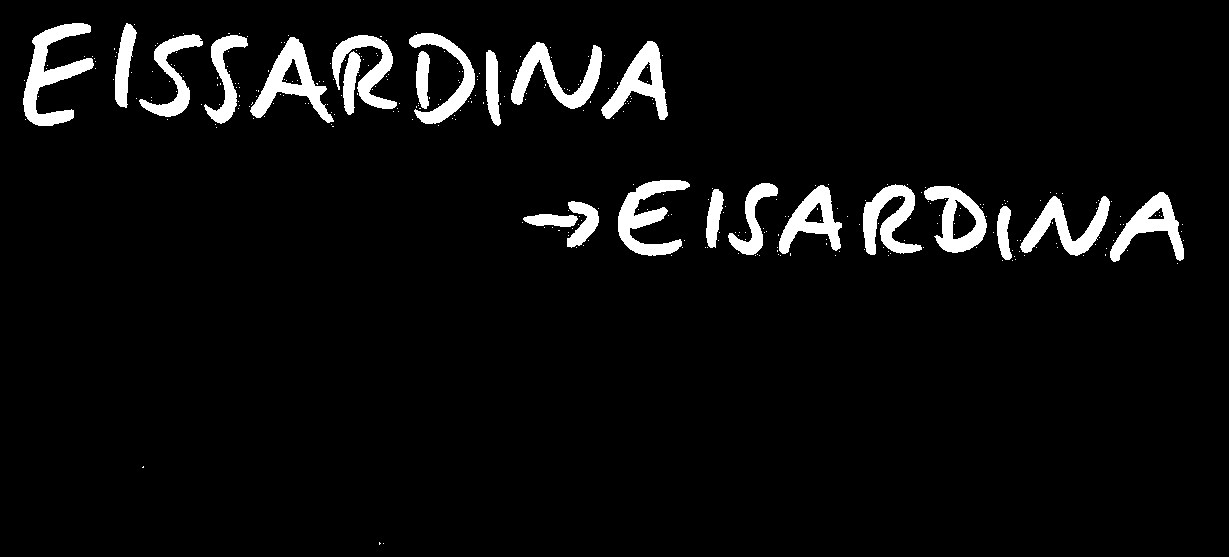 EISSARDINA
→EISARDINA